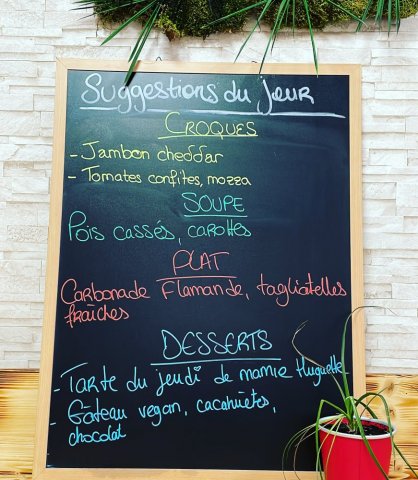 Suggestions du jour
CROQUES
- Jambon cheddar
- Tomates confites, mozza
SOUPE
Pois cassés, carottes
PLAT
Carbonade Flamande, tagliatelles
fraîches
DESSERTS
- Tarte du jeudi de mamie Huguette
- Gâteau vegan, cacahuètes,
chocolat